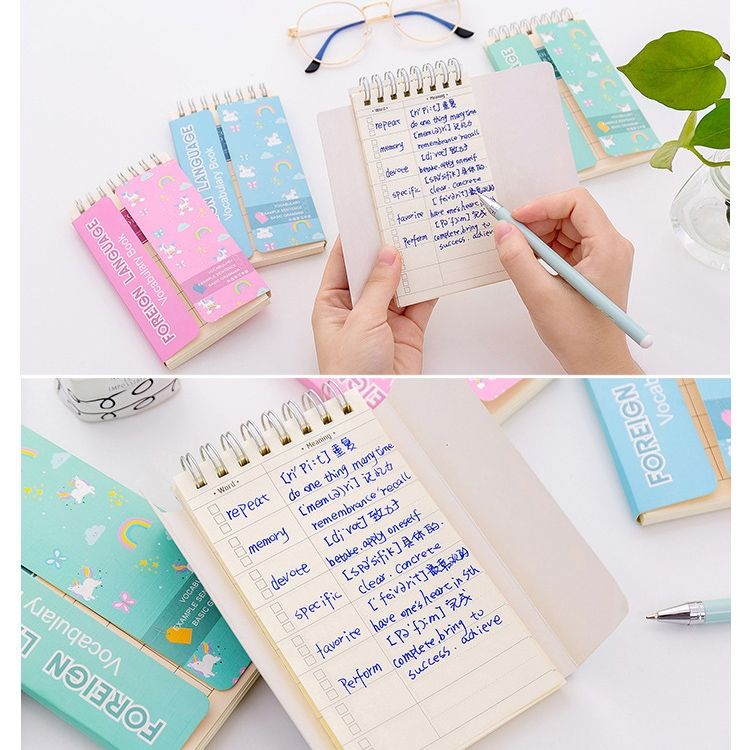 FOREIGN LANGUAGE
Vocabulary Book
VOCABULARY
EXAMPLE SENTENCES
BASIC GRAMMAR
GN LANGUAGE
Vocabulary Book
VOCABULARY
EXAMPLE SENTENCES
BASIC GRAMMAR
FOREIGN LANGUAGE
Vocabulary Book
• Word • • Meaning •
repeat [ri'Pi:t] 重复
do one thing many time
memory [mem(ə)ri] 记忆力
remembrance recall
devote [di'vot] 致力于
betake.apply oneself
specific [spə'sifik] 具体的.
clear. concrete
favorite ['feivərit] 最喜欢的
have one's heart in sth
Perform [Pə'fɔ:m] 完成
complete.bring to
success. achieve
• Word • • Meaning •
repeat [ri'Pi:t] 重复
do one thing many time
memory [mem(ə)ri] 记忆力
remembrance recall
devote [di'vot] 致力于
betake.apply oneself
specific [spə'sifik] 具体的.
clear. concrete
favorite ['feivərit] 最喜欢的
have one's heart in sth
Perform [Pə'fɔ:m] 完成
complete.bring to
success. achieve
FOREIGN LA
Vocabulary
VOCABUL
EXAMPLE SEN
BASIC G
FOREIGN
Vocab